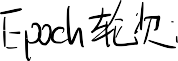 Epoch轮次.